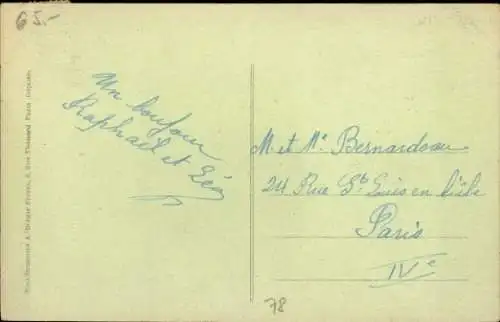 65.-
Un boujour
Raphaël et Léo
M et Me Bernardeau
24 Rue St Louis en l'île
Paris
IVe
78